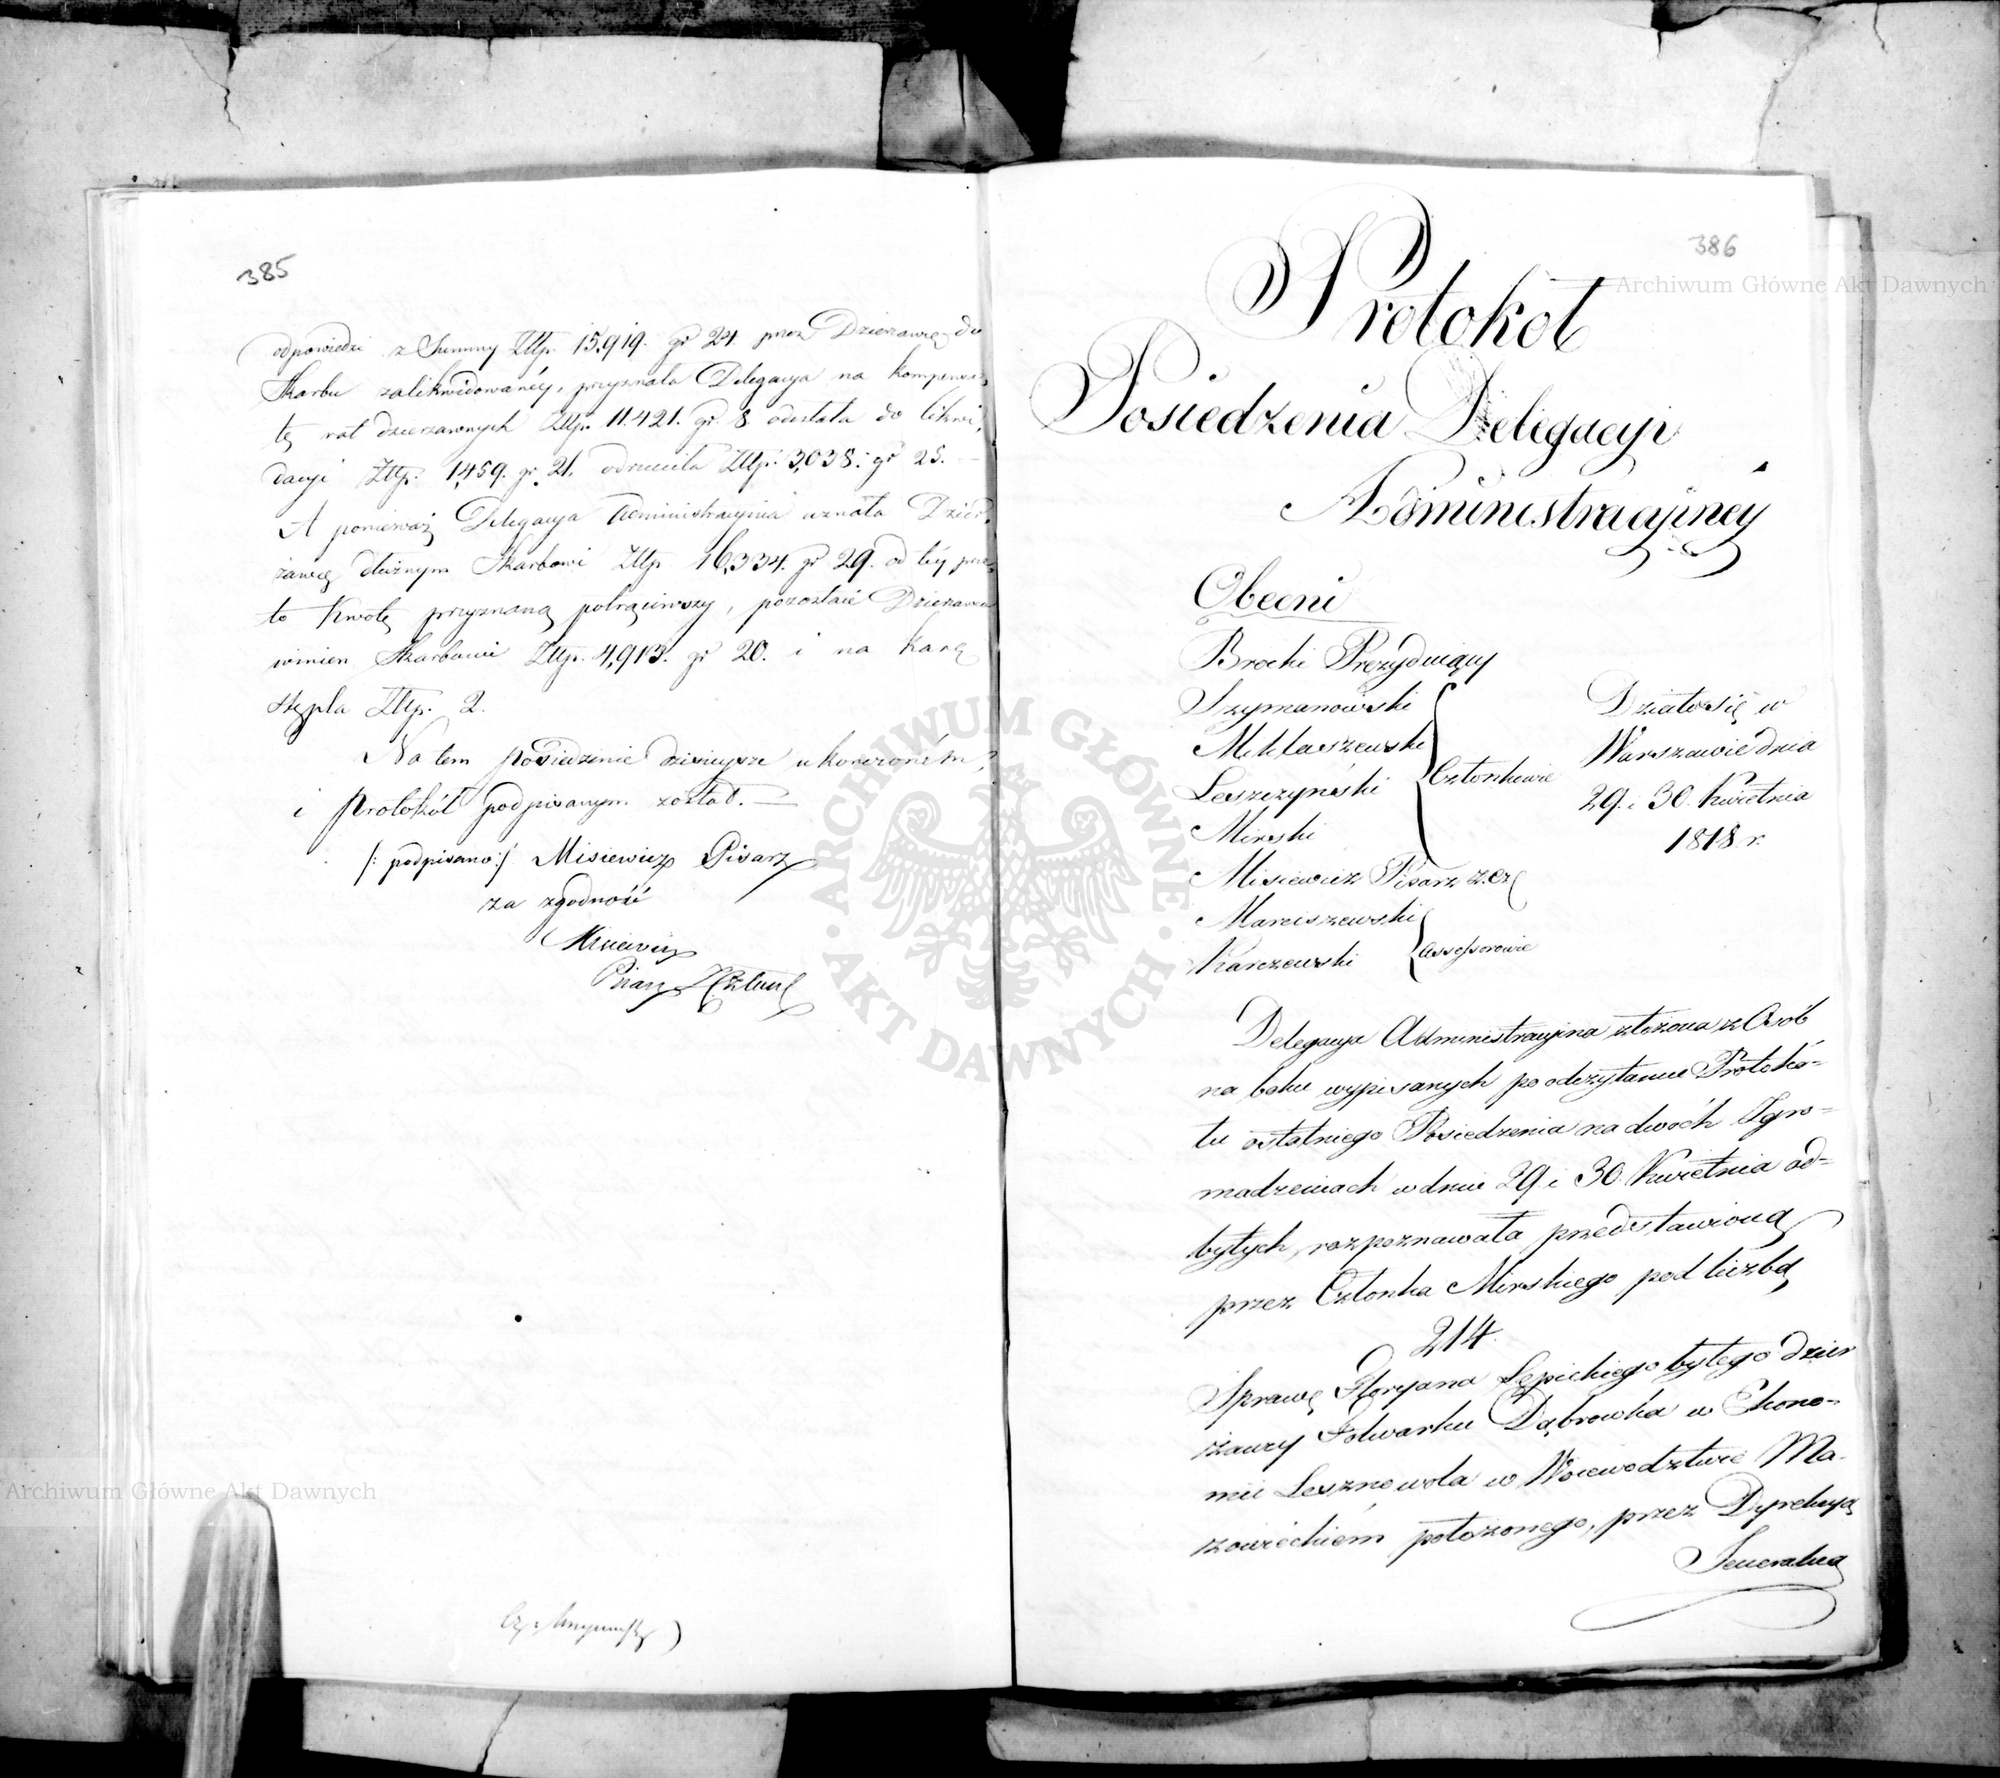 385
odpowiedzi z Summy Złtp. 15,919. gr 24. przez Dzierzawcę do
Skarbu zalikwidowanéy, przyznała Delegacya na kompensa-
tę rat dzierzawnych Złtp. 11.421. gr. 8. odesłała do likwi-
dacyi Złtp. 1,459. gr. 21. odrzuciła Złtp. 3,038. gr 25. —
A ponieważ Delegacya Administracyjna uznała Dzier-
zawcę dłużnym Skarbowi Złtp 16,334. gr 29. od téy prze-
to Kwotę przyznaną potrąciwszy, pozostaie Dzierzawca
winien Skarbowi Złtp. 4,913. gr 20. i na karę
stępla Złtp. 2.
Na tem posiedzenie dzisieysze ukończoném,
i Protokół podpisanym został. —
/: podpisano :/ Misiewicz Pisarz
za zgodność
Misiewicz
Pisarz
386
Protokół
Posiedzenia Delegacyi
Administracyjnéy
Obecni
Brocki Prezyduiący
Szymanowski
Miklaszewski
Leszczyński
Mirski
Członkowie
Misiewicz Pisarz
Marciszewski
Karczewski
Assessorowie
Działo się w
Warszawie dnia
29. i 30. Kwietnia
1818 r.
Delegacya Administracyjna złożona z Osób
na boku wypisanych po odczytaniu Protokó-
łu ostatniego Posiedzenia na dwóch Zgro-
madzeniach w dniu 29 i 30. Kwietnia od-
bytych, rozpoznawała przedstawioną
przez Członka Mirskiego pod liczbą
214.
Sprawę Floryana Lepickiego byłego dzier
żawcy Folwarku Dąbrowka w Ekono-
mii Lesznowola w Woiewodztwie Ma-
zowieckiém położonego, przez Dyrekcyą
Jeneralną
Archiwum Główne Akt Dawnych
Archiwum Główne Akt Dawnych
ARCHIWUM GŁÓWNE AKT DAWNYCH